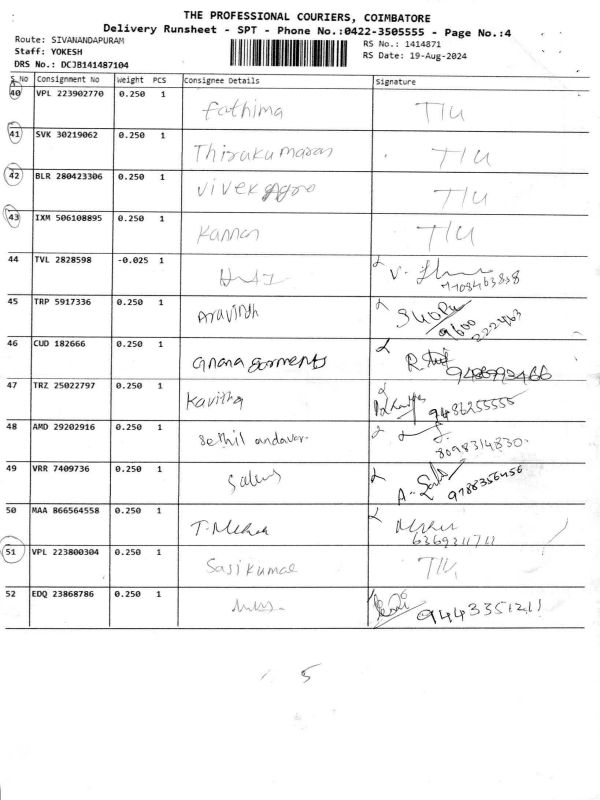 THE PROFESSIONAL COURIERS, COIMBATORE
Delivery Runsheet - SPT - Phone No.:0422-3505555 - Page No.:4
Route: SIVANANDAPURAM
RS No.: 1414871
Staff: YOKESH
RS Date: 19-Aug-2024
DRS No.: DCJB141487104
S_No Consignment No Weight PCS Consignee Details Signature
40 VPL 223902770 0.250 1 Fathima T/U
41 SVK 30219062 0.250 1 Thirukumaran T/U
42 BLR 280423306 0.250 1 Vivek T/U
43 IXM 506108895 0.250 1 Kannan T/U
44 TVL 2828598 -0.025 1 V.
45 TRP 5917336 0.250 1 Aravindh
9600
222463
46 CUD 182666 0.250 1 Gnana Garments R.
47 TRZ 25022797 0.250 1 Kavitha
9486255555
48 AMD 29202916 0.250 1 Sethil andavar
8098314830.
49 VRR 7409736 0.250 1 A.
9788356456
50 MAA 866564558 0.250 1 T.
6369211711
51 VPL 223800304 0.250 1 Sasikumar T/U
52 EDQ 23868786 0.250 1 9443351211
5